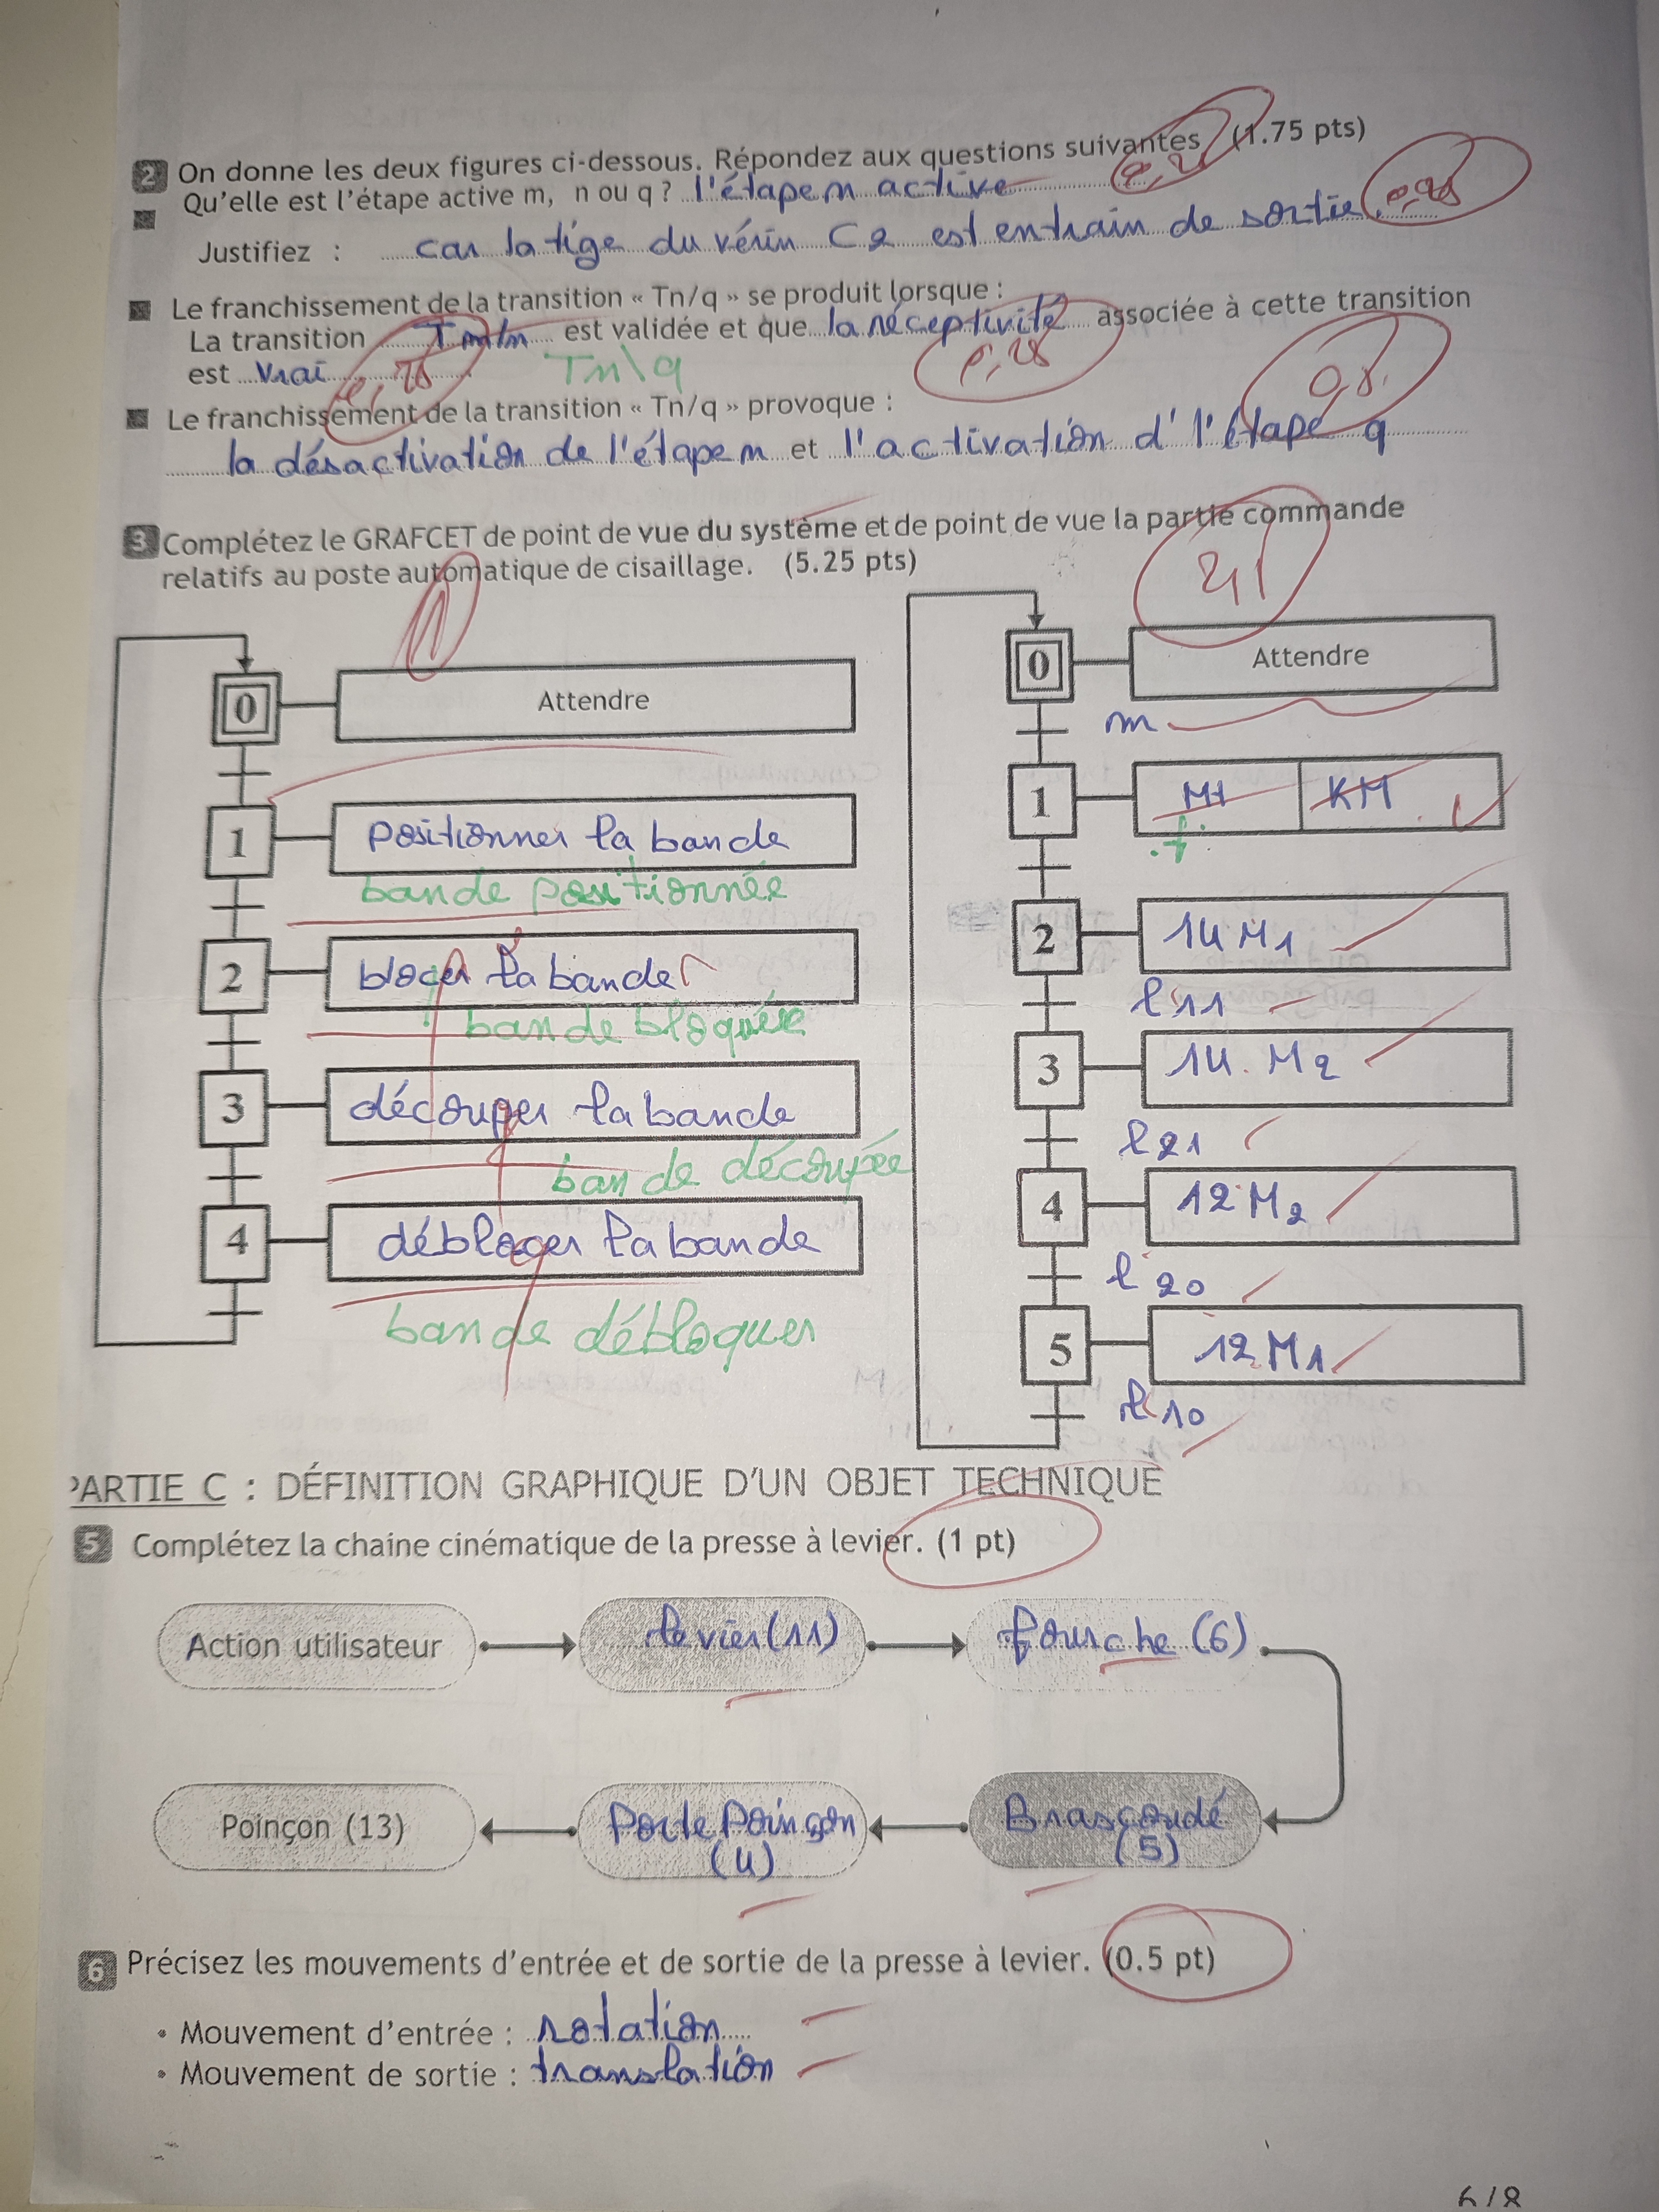 2 On donne les deux figures ci-dessous. Répondez aux questions suivantes (1.75 pts)
Qu'elle est l'étape active m, n ou q ? l'étape n active
Justifiez : car la tige du vérin C2 est entrain de sortie.
Le franchissement de la transition « Tn/q » se produit lorsque :
La transition Tm/n est validée et que la réceptivité associée à cette transition
est vrai
Tn\q
Le franchissement de la transition « Tn/q » provoque :
0,5
la désactivation de l'étape n et l'activation d'l'étape q
3 Complétez le GRAFCET de point de vue du système et de point de vue la partie commande
relatifs au poste automatique de cisaillage. (5.25 pts)
0 Attendre
1 positionner la bande
bande positionnée
2 blocer la bande
bande bloquée
3 découper la bande
bande découpée
4 déblocer la bande
bande débloquer
0 Attendre
m
1 Mt KM
f
2 14 M1
l 11
3 14 M2
l 21
4 12 M2
l 20
5 12 M1
l 10
PARTIE C : DÉFINITION GRAPHIQUE D'UN OBJET TECHNIQUE
5 Complétez la chaine cinématique de la presse à levier. (1 pt)
Action utilisateur levier (11) fourche (6)
Poinçon (13) Porte Poinçon (4) Bras coudé (5)
6 Précisez les mouvements d'entrée et de sortie de la presse à levier. (0.5 pt)
• Mouvement d'entrée : rotation
• Mouvement de sortie : translation
6/8